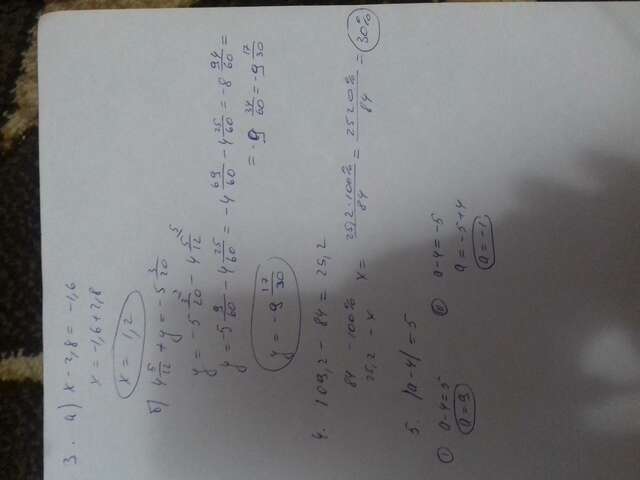 3. а) x - 2,8 = -1,6
x = -1,6 + 2,8
x = 1,2
б) 4 5/12 + y = -5 3/20
y = -5 3/20 - 4 5/12
y = -5 9/60 - 4 25/60 = -4 69/60 - 4 25/60 = -8 94/60 =
= -9 34/60 = -9 17/30
y = -9 17/30
4. 109,2 - 84 = 25,2
84 - 100%
25,2 - x x = 25,2·100%/84 = 2520%/84 = 30%
5. |a-4| = 5
① a-4=5 ② a-4=-5
a=9 a=-5+4
a=-1